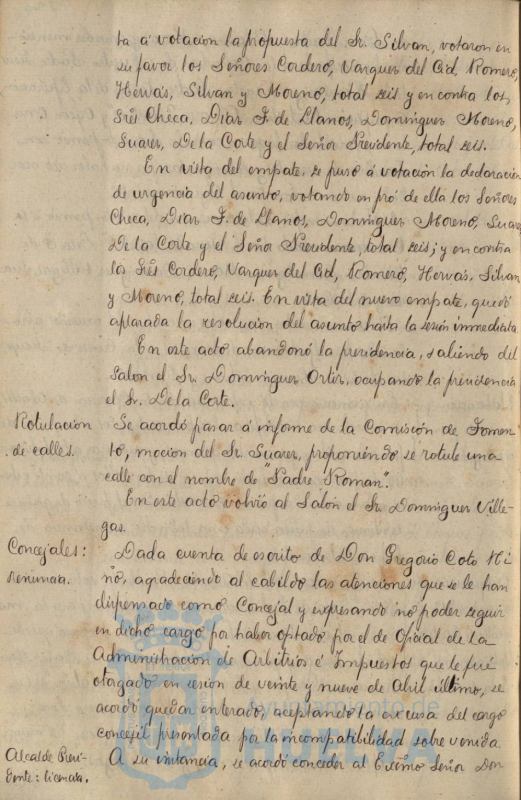 ta á votación la propuesta del Sr. Silvan, votaron en
su favor los Señores Cordero, Vazquez del Cid, Romero,
Hervás, Silvan y Moreno, total seis y en contra los
Srēs Checa, Diaz F. de Llanos, Dominguez Moreno,
Suarez, De la Corte y el Señor Presidente, total seis.
En vista del empate, se pusó á votación la declaración
de urgencia del asunto, votando en pró de ella los Señores
Checa, Diaz F. de Llanos, Dominguez Moreno, Suarez
De la Corte y el Señor Presidente, total seis; y en contra
la Srēs Cordero, Vazquez del Cid, Romero, Hervás, Silvan
y Moreno, total seis. En vista del nuevo empate, quedó
aplazada la resolución del asunto hasta la sesión inmediata
En este acto abandonó la presidencia, saliendo del
salon el Sr. Dominguez Ortiz, ocupando la presidencia
el Sr. De la Corte.
Rotulacion
de calles.
Se acordó pasar á informe de la Comisión de Fomen-
to, mocion del Sr. Suarez, proponiendo se rotule una
calle con el nombre de "Padre Roman".
En este acto volvió al Salón el Sr. Dominguez Ville-
gas.
Concejales:
renuncia.
Dada cuenta de escrito de Don Gregorio Coto Mi
ño, agradeciendo al cabildo las atenciones que se le han
dispensado como Concejal y expresando no poder seguir
en dicho cargo por haber optado por el de Oficial de la
Administración de Arbitrios é Impuestos que le fué
otorgado en sesion de veinte y nueve de Abril último, se
acordó quedar enterado, aceptando la excusa del cargo
concejil presentada por la incompatibilidad sobrevenida
Alcalde Presi-
dente: licencia.
A su instancia, se acordó conceder al Excmo Señor Don
Ayuntamiento de
HUELVA